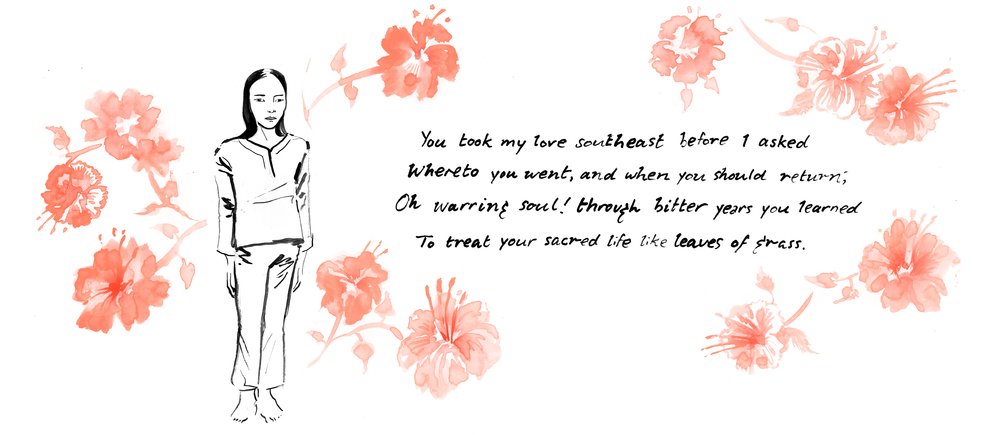 You took my love southeast before I asked
Whereto you went, and when you should return;
Oh warring soul! through bitter years you learned
To treat your sacred life like leaves of grass.